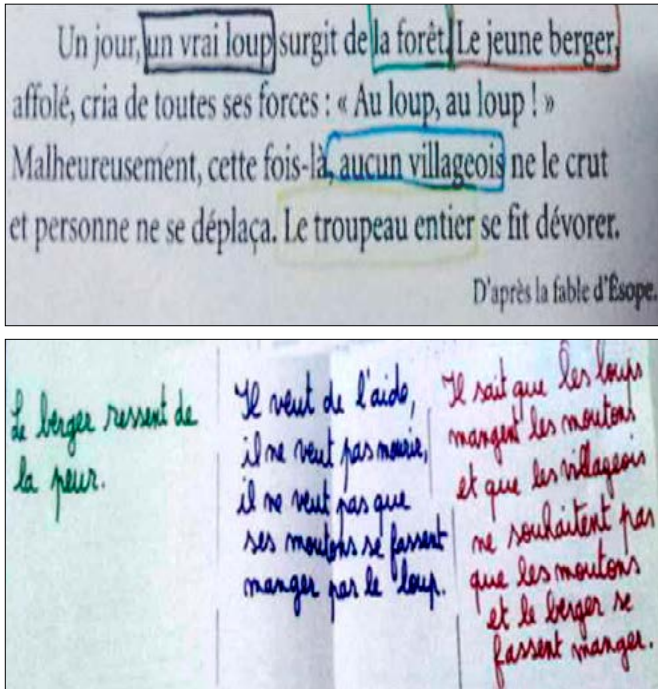 Un jour, un vrai loup surgit de la forêt. Le jeune berger,
affolé, cria de toutes ses forces : « Au loup, au loup ! »
Malheureusement, cette fois-là, aucun villageois ne le crut
et personne ne se déplaça. Le troupeau entier se fit dévorer.
D'après la fable d'Ésope.
Le berger ressent de
la peur.
Il veut de l'aide,
il ne veut pas mourir,
il ne veut pas que
ses moutons se fassent
manger par le loup.
Il sait que les loups
mangent les moutons
et que les villageois
ne souhaitent pas
que les moutons
et le berger se
fassent manger.